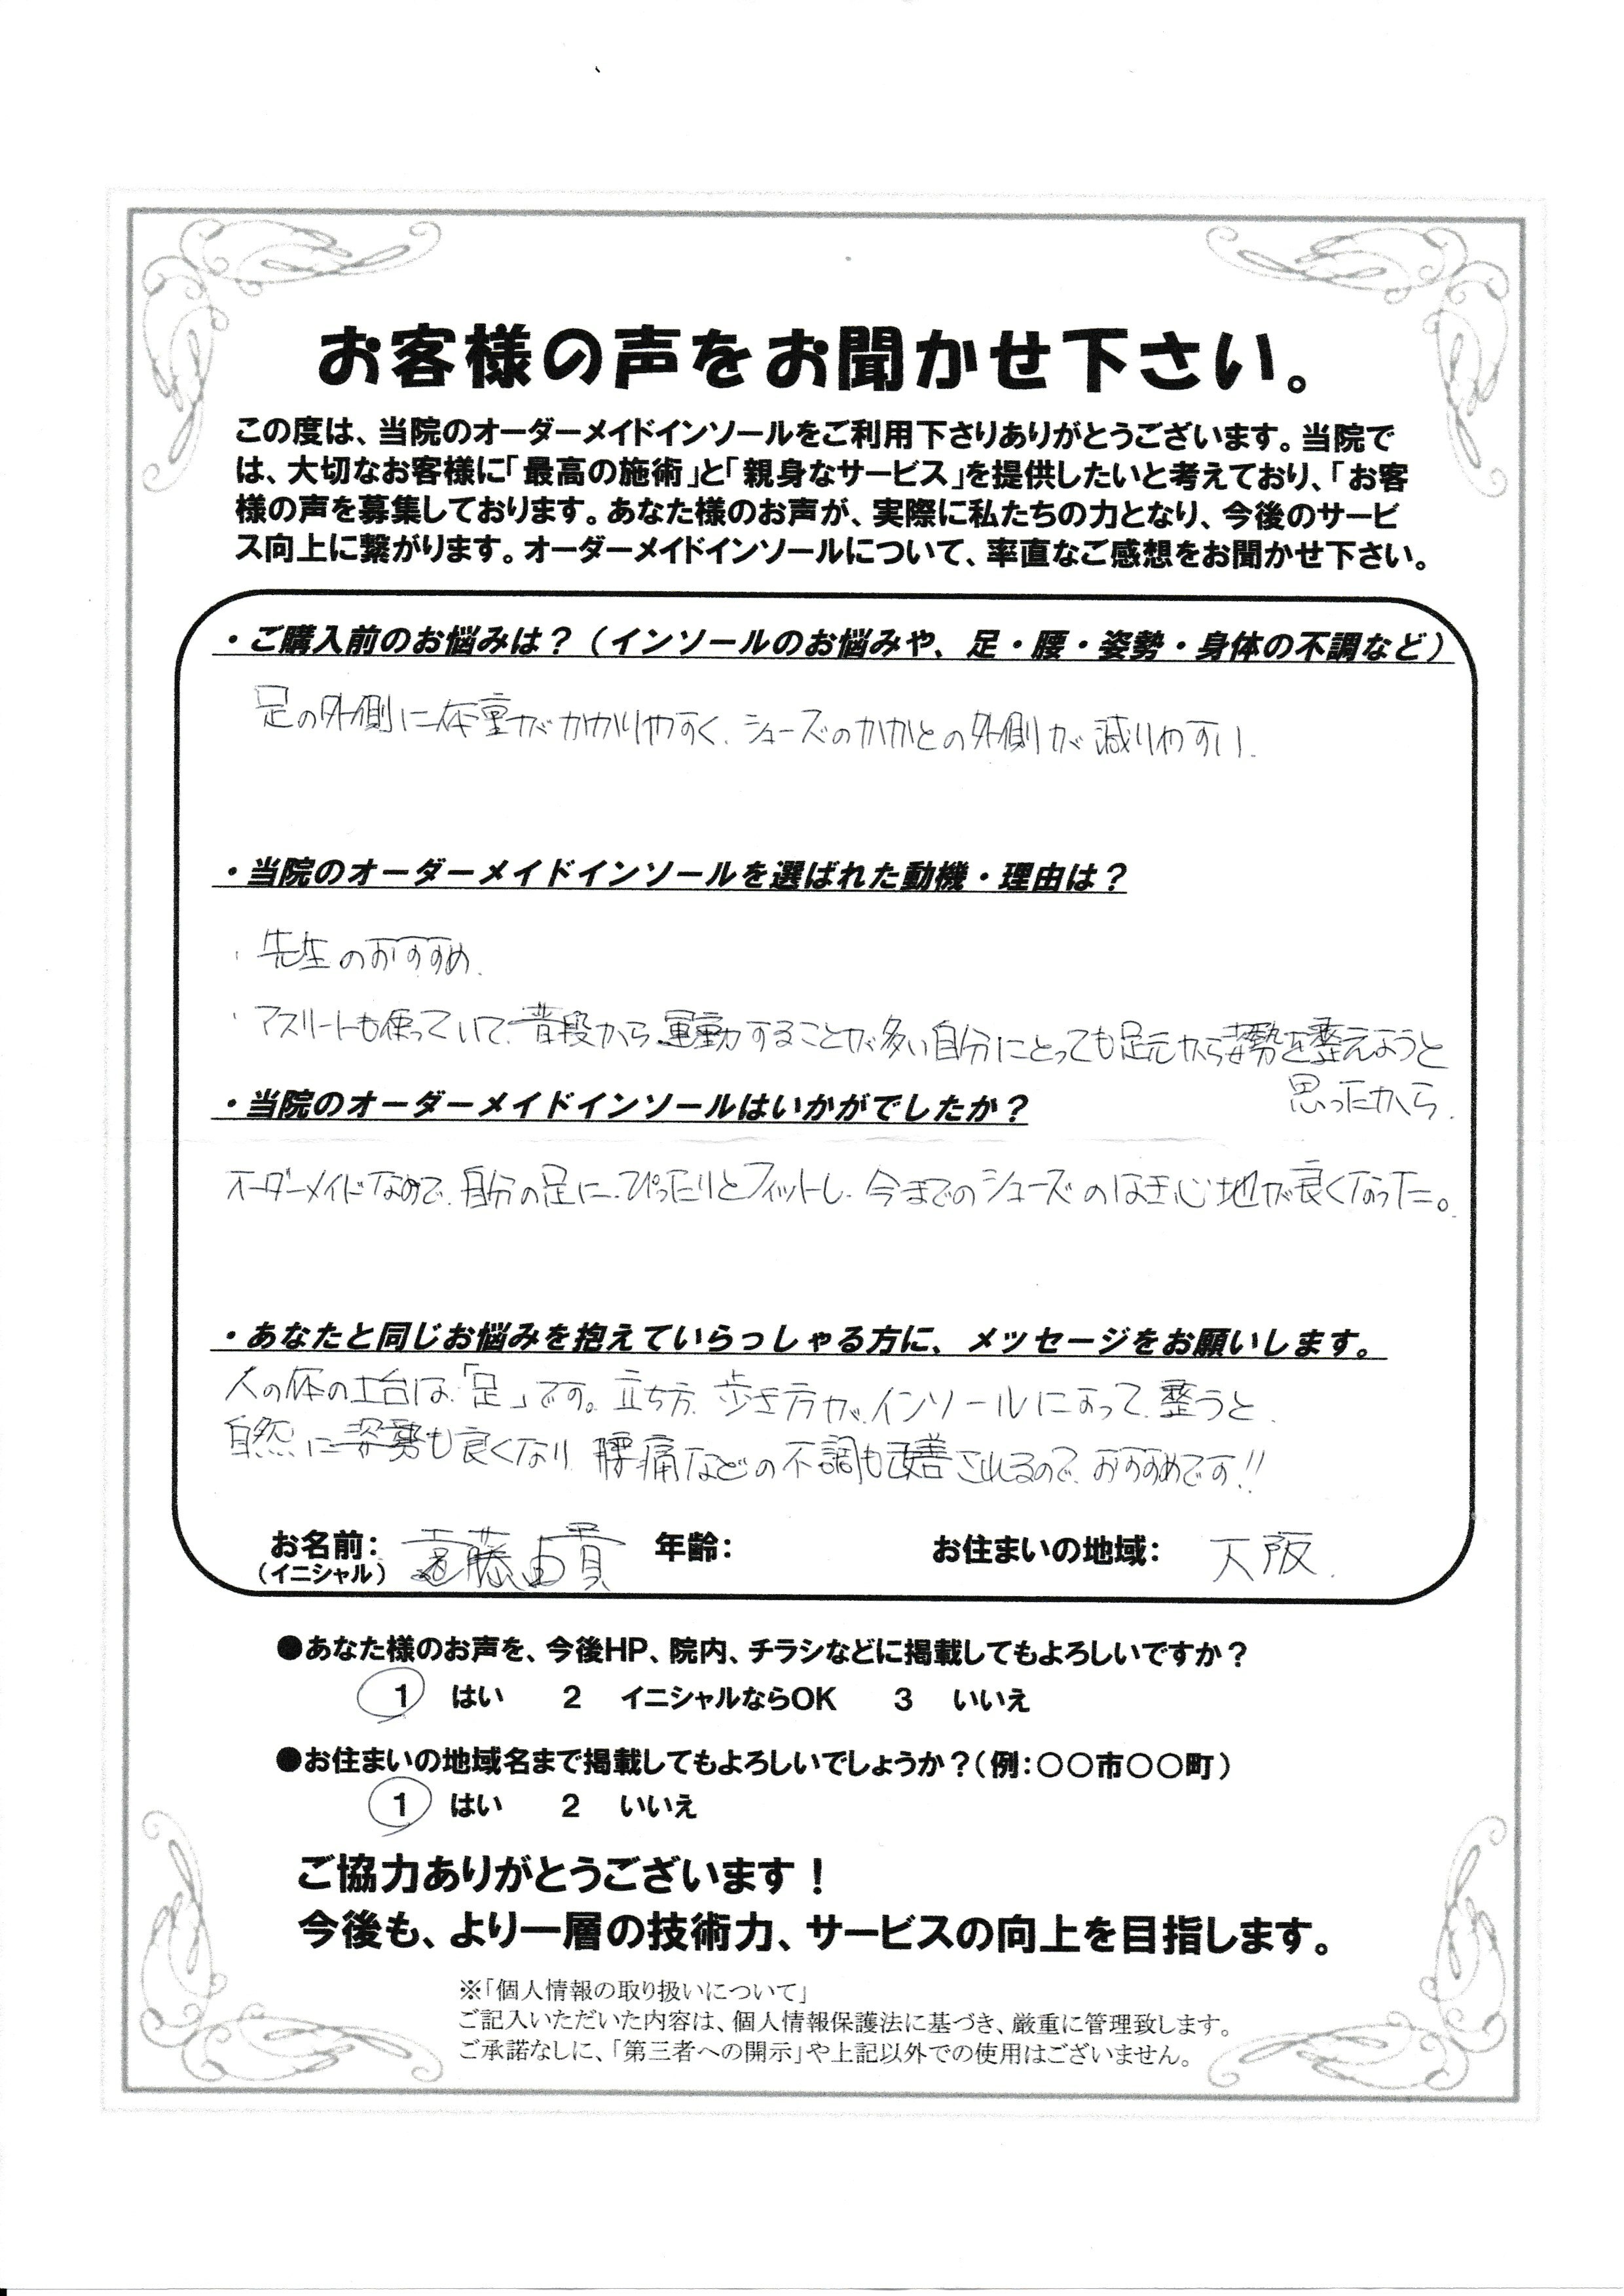 お客様の声をお聞かせ下さい。
この度は、当院のオーダーメイドインソールをご利用下さりありがとうございます。当院で
は、大切なお客様に「最高の施術」と「親身なサービス」を提供したいと考えており、「お客
様の声を募集しております。あなた様のお声が、実際に私たちの力となり、今後のサービ
ス向上に繋がります。オーダーメイドインソールについて、率直なご感想をお聞かせ下さい。
・ご購入前のお悩みは？（インソールのお悩みや、足・腰・姿勢・身体の不調など）
足の外側に体重がかかりやすく、シューズのかかとの外側が減りやすい.
・当院のオーダーメイドインソールを選ばれた動機・理由は？
・先生のおすすめ.
・アスリートも使っていて、普段から運動することが多い自分にとっても足元から姿勢を整えようと
思ったから.
・当院のオーダーメイドインソールはいかがでしたか？
オーダーメイドなので、自分の足に、ぴったりとフィットし、今までのシューズのはき心地が良くなった。
・あなたと同じお悩みを抱えていらっしゃる方に、メッセージをお願いします。
人の体の土台は、「足」です。立ち方、歩き方が、インソールによって、整うと、
自然に姿勢も良くなり、腰痛などの不調も改善されるので、おすすめです!!
お名前： 遠藤由貢 年齢： お住まいの地域： 大阪.
（イニシャル）
●あなた様のお声を、今後HP、院内、チラシなどに掲載してもよろしいですか？
1 はい 2 イニシャルならOK 3 いいえ
●お住まいの地域名まで掲載してもよろしいでしょうか？（例：〇〇市〇〇町）
1 はい 2 いいえ
ご協力ありがとうございます！
今後も、より一層の技術力、サービスの向上を目指します。
※「個人情報の取り扱いについて」
ご記入いただいた内容は、個人情報保護法に基づき、厳重に管理致します。
ご承諾なしに、「第三者への開示」や上記以外での使用はございません。